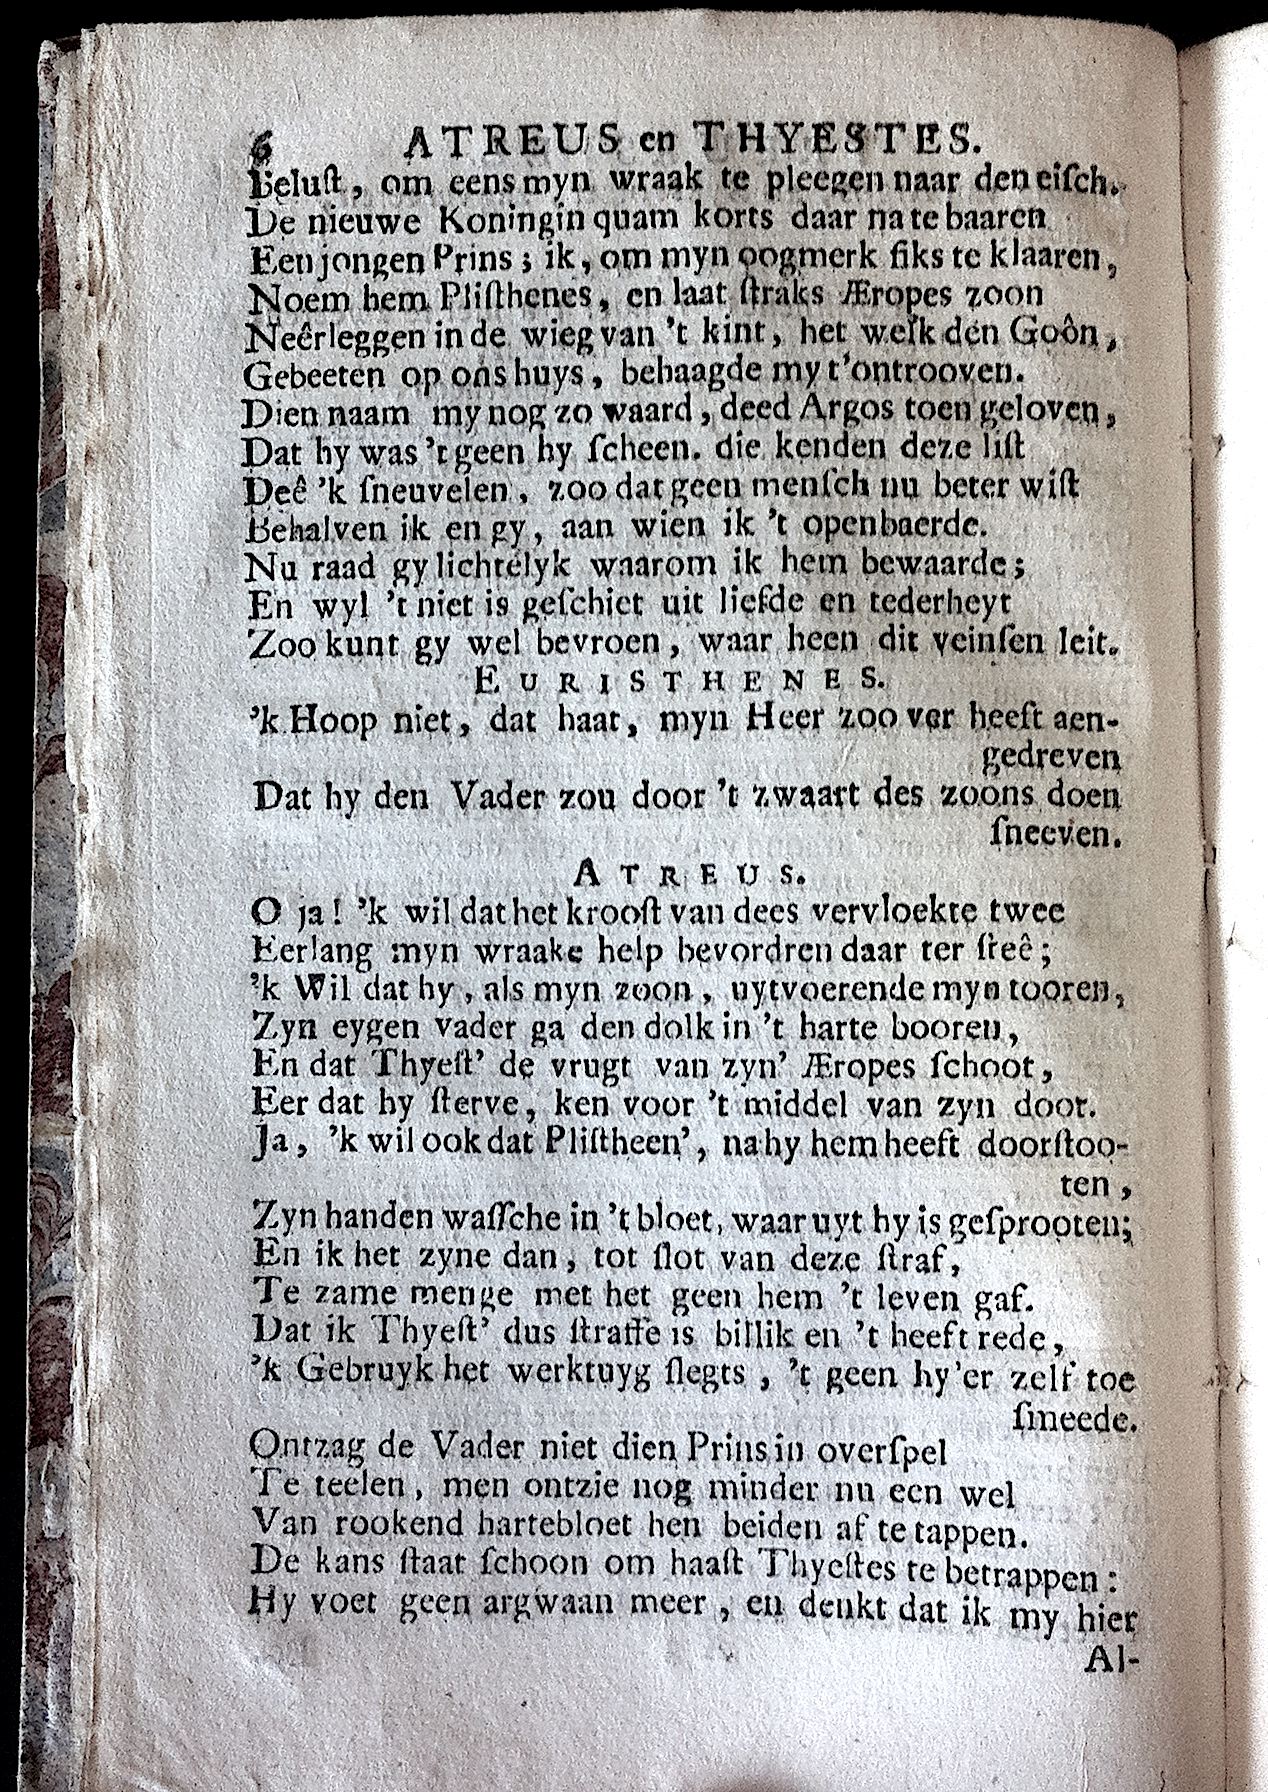 6 ATREUS en THYESTES.
Beluſt, om eens myn wraak te pleegen naar den eiſch.
De nieuwe Koningin quam korts daar na te baaren
Een jongen Prins; ik, om myn oogmerk fiks te klaaren,
Noem hem Pliſthenes, en laat ſtraks Æropes zoon
Neêrleggen in de wieg van 't kint, het welk den Goôn,
Gebeeten op ons huys, behaagde my t'ontrooven.
Dien naam my nog zo waard, deed Argos toen geloven,
Dat hy was 't geen hy ſcheen. die kenden deze liſt
Deê 'k ſneuvelen, zoo dat geen menſch nu beter wiſt
Behalven ik en gy, aan wien ik 't openbaerde.
Nu raad gy lichtelyk waarom ik hem bewaarde;
En wyl 't niet is geſchiet uit liefde en tederheyt
Zoo kunt gy wel bevroen, waar heen dit veinſen leit.
EURISTHENES.
'k Hoop niet, dat haat, myn Heer zoo ver heeft aen-
gedreven
Dat hy den Vader zou door 't zwaart des zoons doen
ſneeven.
ATREUS.
O ja! 'k wil dat het krooſt van dees vervloekte twee
Eerlang myn wraake help bevordren daar ter ſteê;
'k Wil dat hy, als myn zoon, uytvoerende myn tooren,
Zyn eygen vader ga den dolk in 't harte booren,
En dat Thyeſt' de vrugt van zyn' Æropes ſchoot,
Eer dat hy ſterve, ken voor 't middel van zyn doot.
Ja, 'k wil ook dat Pliſtheen', na hy hem heeft doorſtoo-
ten,
Zyn handen waſſche in 't bloet, waar uyt hy is geſprooten;
En ik het zyne dan, tot ſlot van deze ſtraf,
Te zame menge met het geen hem 't leven gaf.
Dat ik Thyeſt' dus ſtraffe is billik en 't heeft rede,
'k Gebruyk het werktuyg ſlegts, 't geen hy 'er zelf toe
ſmeede.
Ontzag de Vader niet dien Prins in overſpel
Te teelen, men ontzie nog minder nu een wel
Van rookend hartebloet hen beiden af te tappen.
De kans ſtaat ſchoon om haaſt Thyeſtes te betrappen:
Hy voet geen argwaan meer, en denkt dat ik my hier
Al-